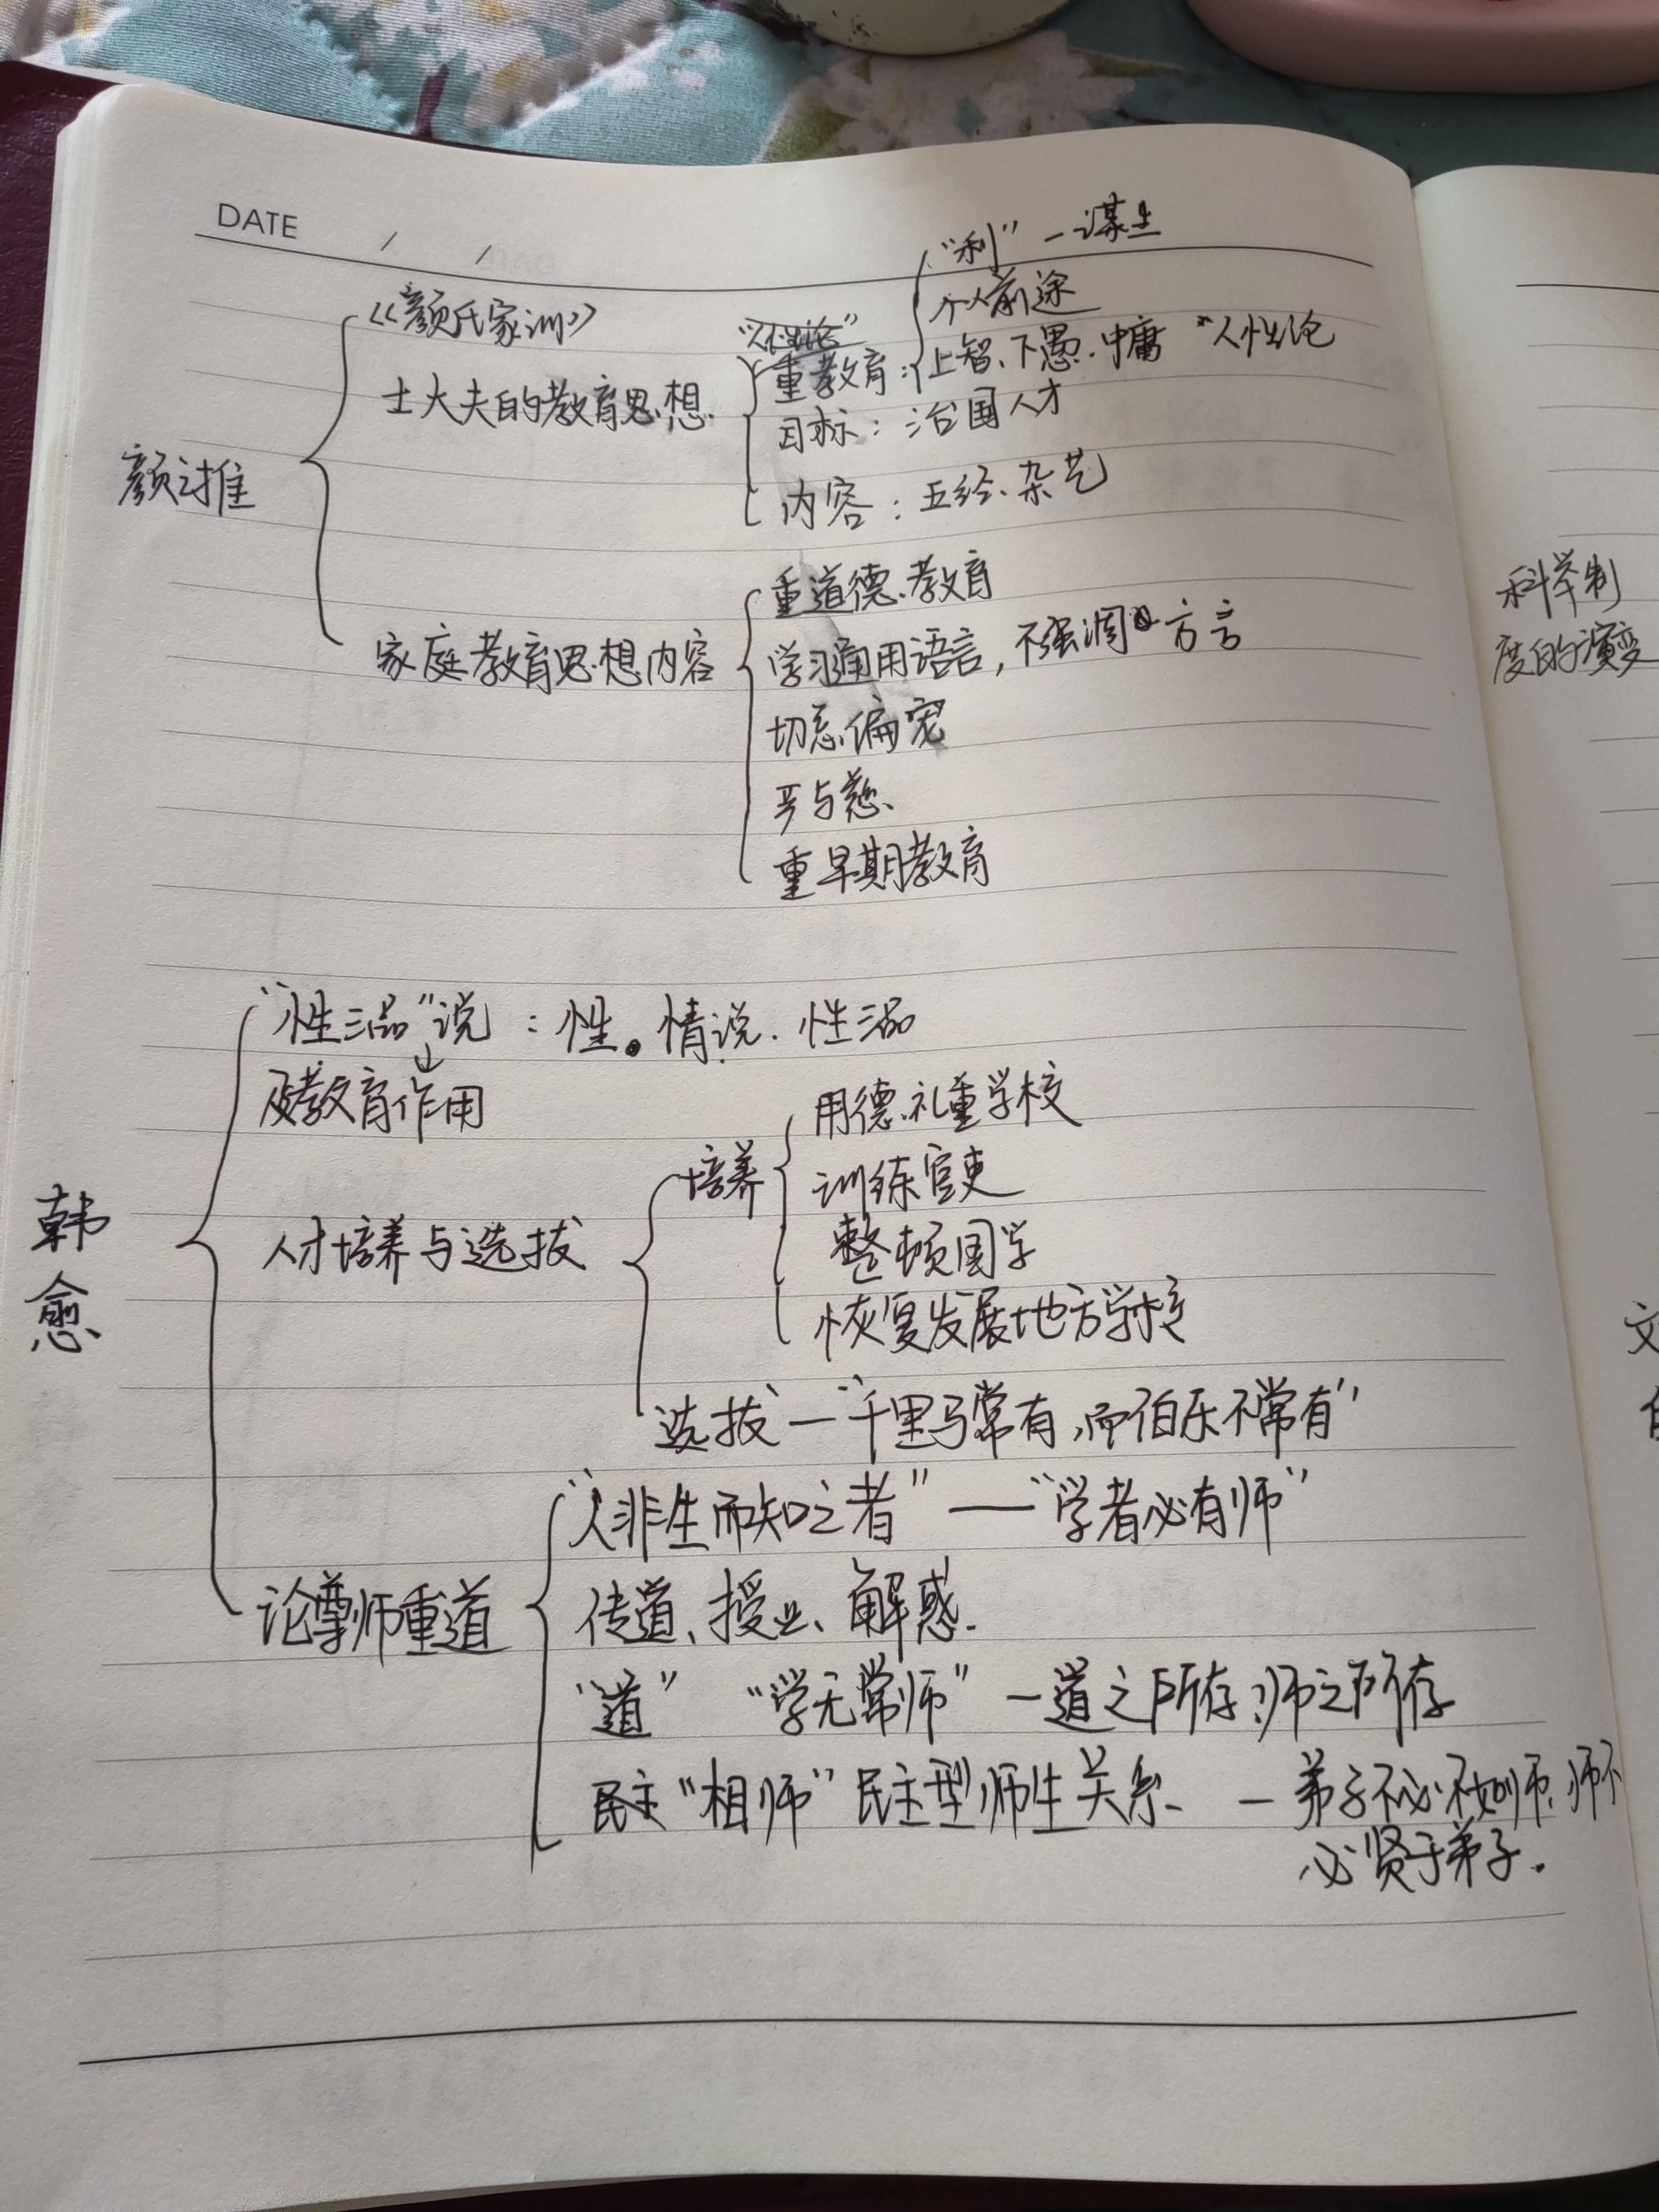 DATE / /
“利”—谋生
《颜氏家训》
个人前途
重教育：上智、下愚、中庸 “人性论
士大夫的教育思想
目标：治国人才
颜之推
内容：五经、杂艺
重道德教育
家庭教育思想内容
学习通用语言，不强调 方言
切忌偏宠
严与慈
重早期教育
“性三品”说：性。情说．性三品
及教育作用
用德礼重学校
培养
训练官吏
韩愈
人才培养与选拔
整顿国学
恢复发展地方学校
选拔—“千里马常有，而伯乐不常有”
“人非生而知之者”——“学者必有师”
论尊师重道
传道、授业、解惑.
“道” “学无常师”—道之所存，师之所存
民主“相师”民主型师生关系 — 弟子不必不如师，师不
必贤于弟子.
科举制
度的演变
文